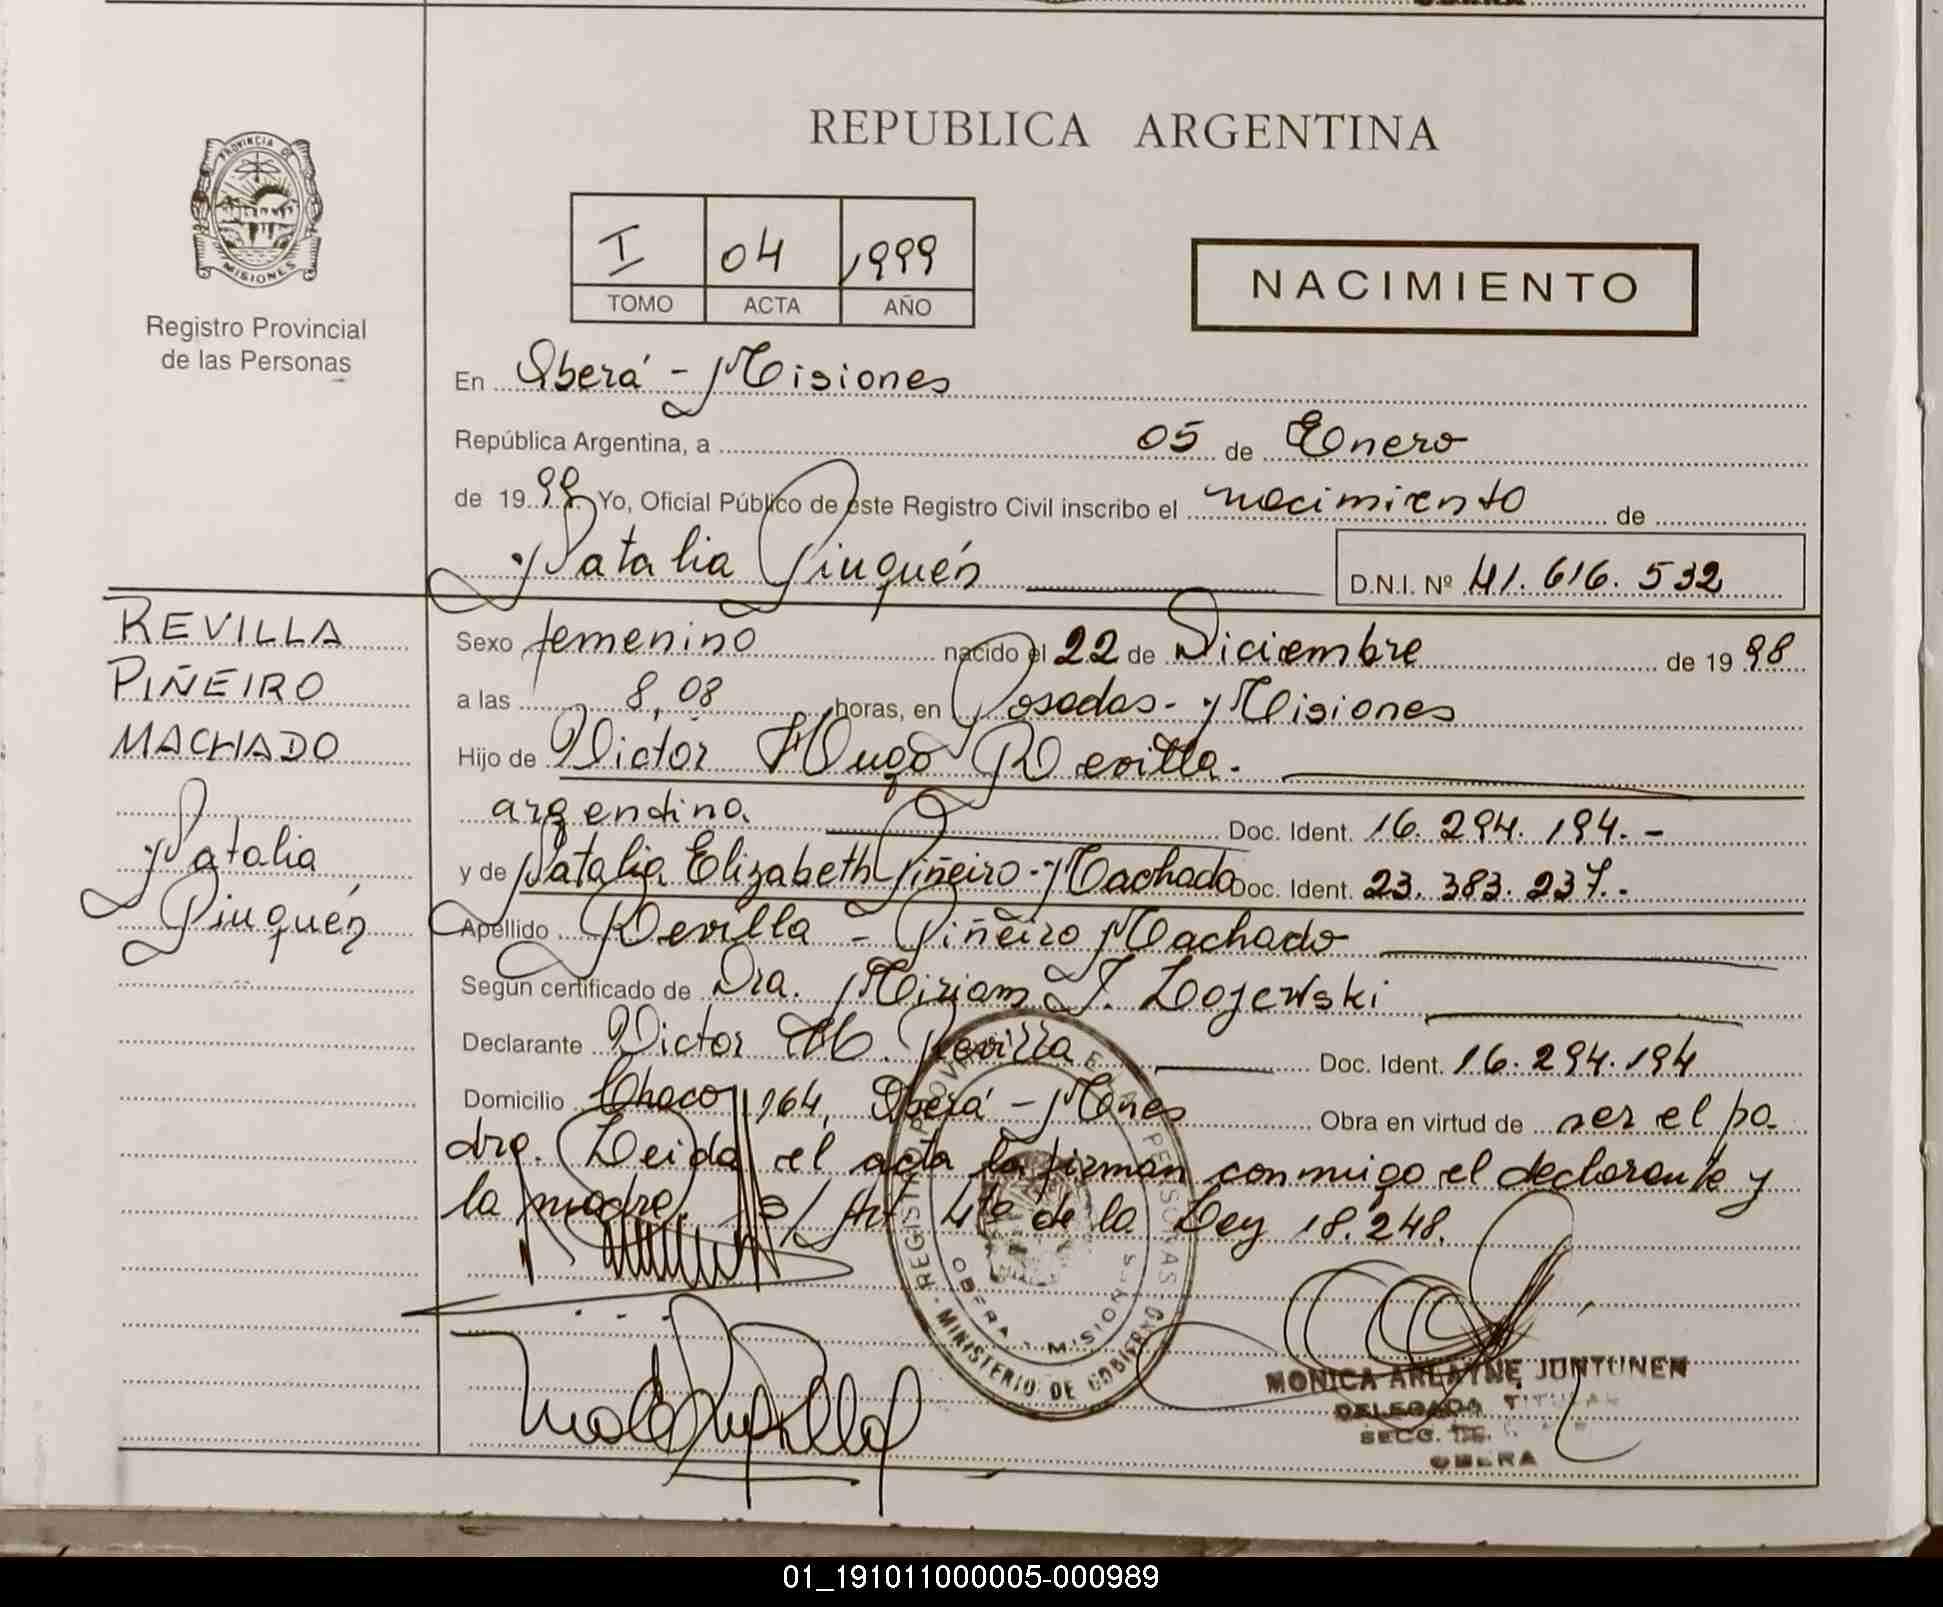 REPUBLICA ARGENTINA
PROVINCIA DE
MISIONES
Registro Provincial
de las Personas
I 04 1999
TOMO ACTA AÑO
NACIMIENTO
En Oberá - Misiones
República Argentina, a 05 de Enero
de 1999 Yo, Oficial Público de este Registro Civil inscribo el nacimiento de
Natalia Piuquén D.N.I. Nº 41.616.532
REVILLA
PIÑEIRO
MACHADO
Natalia
Piuquén
Sexo femenino nacido el 22 de Diciembre de 1998
a las 8,08 horas, en Posadas - Misiones
Hijo de Victor Hugo Revilla.
argentino. Doc. Ident. 16.294.194.-
y de Natalia Elizabeth Piñeiro - Machado Doc. Ident. 23.383.237.-
Apellido Revilla - Piñeiro Machado
Según certificado de Dra. Miriam J. Lojewski
Declarante Victor H. Revilla Doc. Ident. 16.294.194
Domicilio Chaco 164, Oberá - Mnes Obra en virtud de ser el pa-
dre. Leida el acta la firman conmigo el declarante y
la madre. S/ Art. 4to de la Ley 18.248.
OBERA - MISIONES
MINISTERIO DE GOBIERNO
MONICA ARLAYNE JUNTUNEN
DELEGADA TITULAR
SECC.
OBERA
01_191011000005-000989